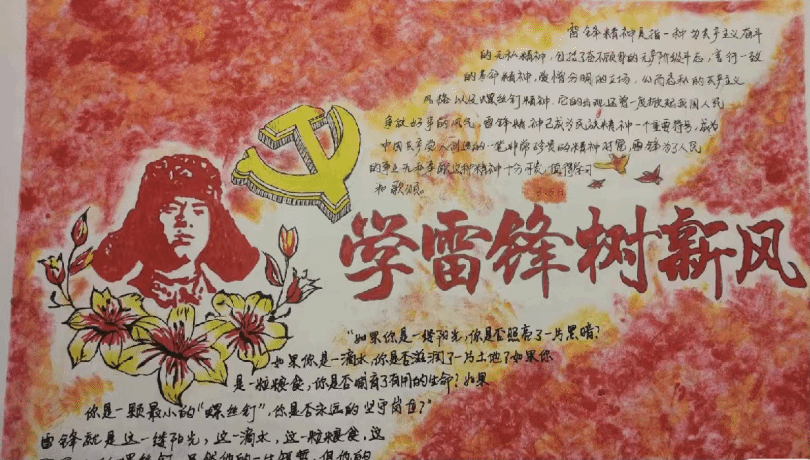 雷锋精神是指一种为共产主义奋斗
的无私精神，包括了奋不顾身的无产阶级斗志，言行一致
的革命精神，爱憎分明的立场，公而忘私的共产主义
风格以及螺丝钉精神，它的出现还曾一度掀起我国人民
争做好事的风气。雷锋精神已成为民族精神一个重要符号，成为
中国共产党人创造的一笔非常珍贵的精神财富，雷锋为了人民
的事业无私奉献这种精神十分可贵，值得学习
和歌颂。
3.5日
学雷锋树新风
"如果你是一缕阳光，你是否照亮了一片黑暗？
如果你是一滴水，你是否滋润了一片土地？如果你
是一粒粮食，你是否哺育了有用的生命？如果
你是一颗最小的"螺丝钉"，你是否永远的坚守岗位？"
雷锋就是这一缕阳光，这一滴水，这一粒粮食，这
螺丝钉